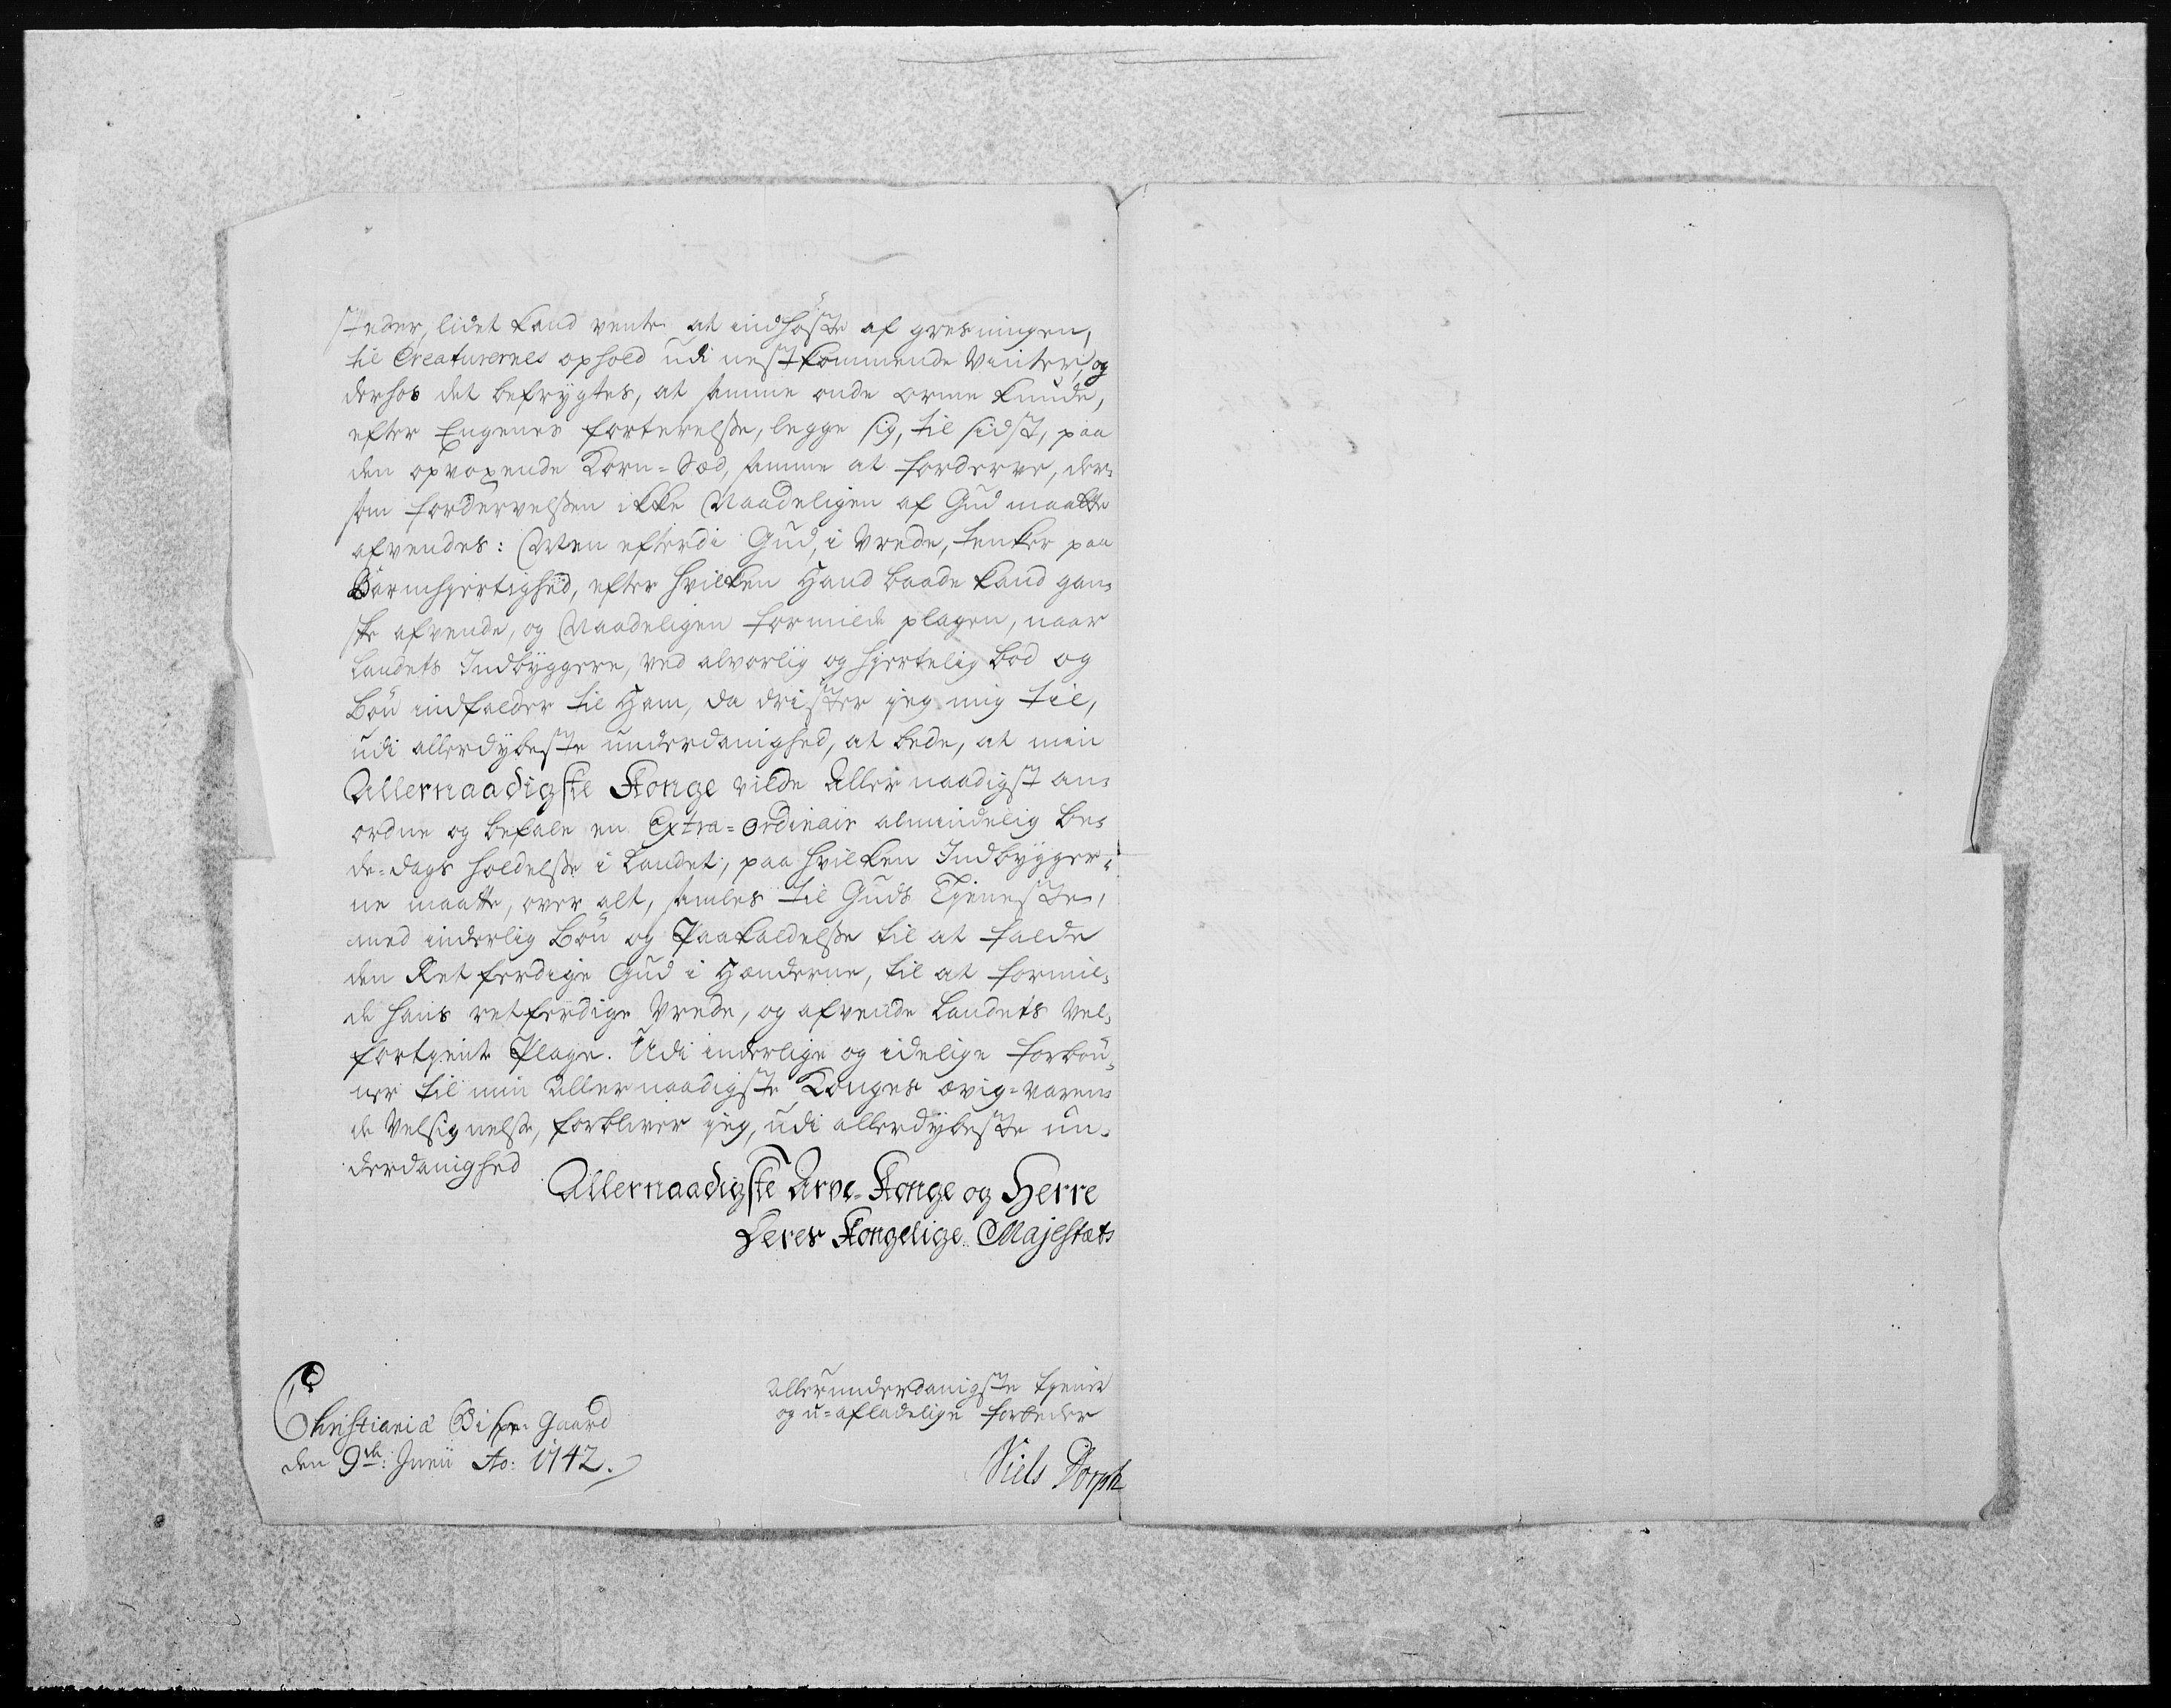 steder, lidet kand vente at indhøste af gresningen,
til Creaturernes ophold udi nest kommende Vinter, og
derhos det befrygtes, at samme onde orme kunde,
efter Engenes forterelsse, legge sig, til sidst, paa
den opvoxende Korn-Sæd, samme at forderve, der-
som fordervelssen ikke Naadeligen af Gud maatte
afvendes: Men efterdi Gud, i Vrede, tenker paa
Barmhjertighed, efter hvilken Hand baade kand gan-
ske afvende, og Naadeligen formilde plagen, naar
Landets Indbyggere, ved alvorlig og hjertelig bod og
Bøn indfalder til Ham, da drister jeg mig til,
udi allerdybeste underdanighed, at bede, at min
Allernaadigste Konge vilde Allernaadigst an-
ordne og befale en Extra-ordinair almindelig Be-
de-dags holdelsse i Landet, paa hvilken Indbygger-
ne maatte, over alt, samles til Guds Tjeneste,
med inderlig Bøn og Paakaldelsse til at falde
den Retferdige Gud i Hænderne, til at formil-
de hans retferdige Vrede, og afvende Landets Vel-
fortjente Plage. Udi inderlige og idelige forbøn-
ner til min Allernaadigste Konges ævig-varen-
de Velsignelsse, forbliver jeg, udi allerdybeste un-
derdanighed
Allernaadigste Arve-Konge og Herre
Deres Kongelige Majestæts
Allerunderdanigste tjener
og u-afladelige forbeder
Niels Dorph
Christiania Bispe-Gaard
den 9de: Junii Ao: 1742.